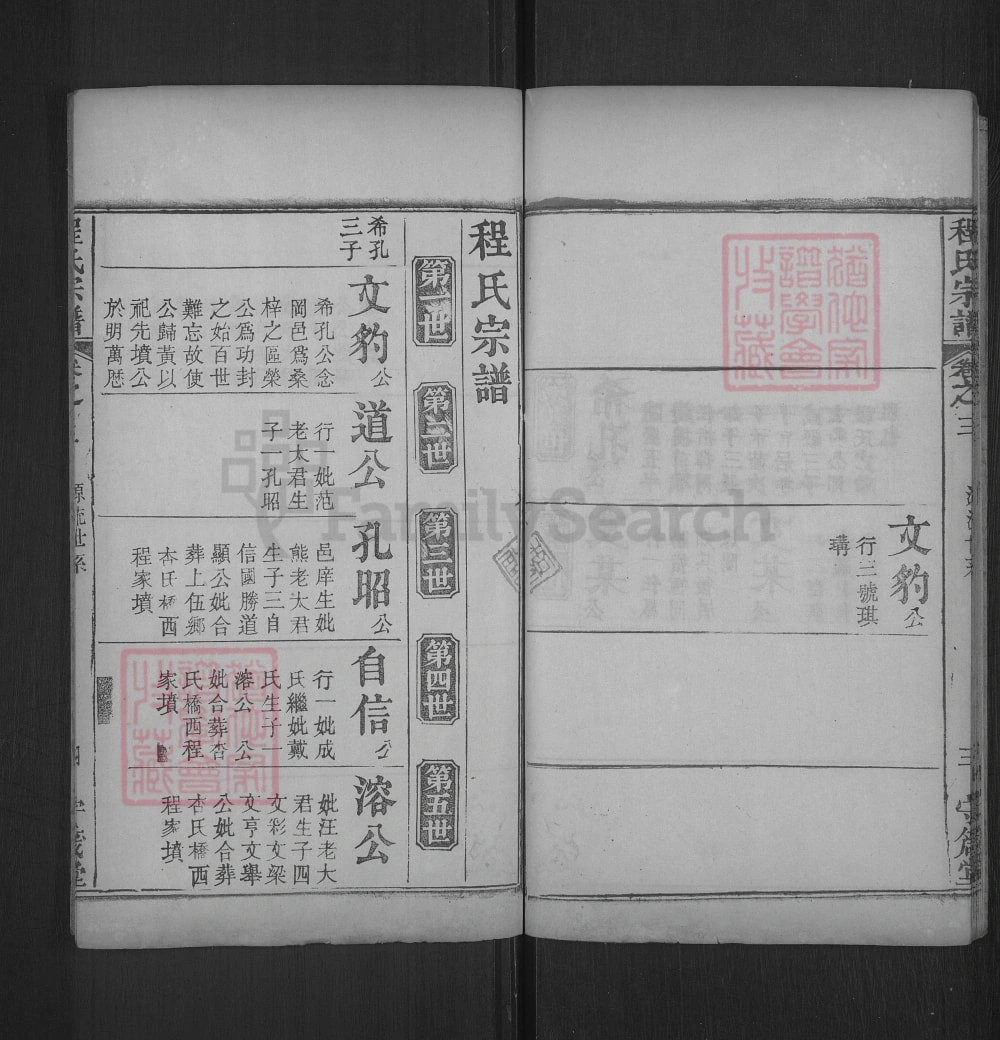 程氏宗譜
卷之三
三
文豹公
行三號琪
璹
程氏宗譜
第一世
第二世
第三世
第四世
第五世
希孔
三子
文豹公
希孔公念
岡邑爲桑
梓之區榮
公爲功封
之始百世
難忘故使
公歸黃以
祀先墳公
於明萬歷
道公
行一妣范
老太君生
子一孔昭
孔昭公
邑庠生妣
熊老太君
生子三自
信國勝道
顯公妣合
葬上伍鄉
杏氏橋西
程家墳
自信公
行一妣成
氏繼妣戴
氏生子一
溶公 公
妣合葬杏
氏橋西程
家墳
溶公
妣汪老大
君生子四
文彩文梁
文亨文舉
公妣合葬
杏氏橋西
程家墳
程氏宗譜
源流世系
FamilySearch